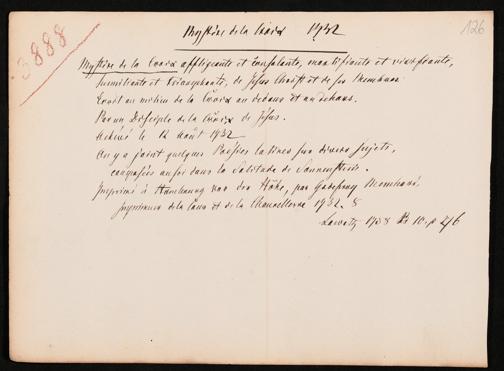 3888
Mystère de la Croix 1732
126
Mystère de la Croix affligeante et consolante, mortifiante et vivifiante,
humiliante et triomphante, de Jésus Christ et de ses Membres
Ecrit au milieu de la Croix au dedans et au dehors.
Par un Disciple de la Croix de Jésus.
Achevé le 12 Août 1732
On y a joint quelques Poésies latines sur divers sujets,
composées aussi dans la Solitude de Sonnenstein.
Imprimé à Hombourg von der Höhe, par
Imprimeur de la Cour et de la Chancellerie 1732. 8